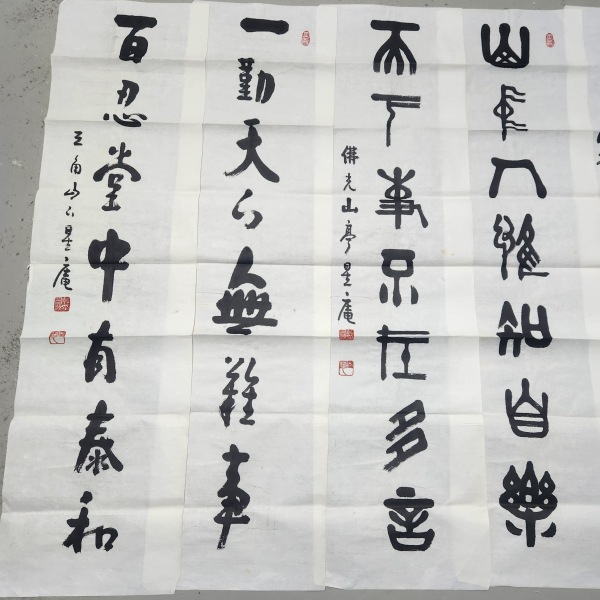 山中人雖知自樂
天下事只在多言
佛光山亭星庵
一勤天下無難事
百忍堂中有泰和
三角山人星庵